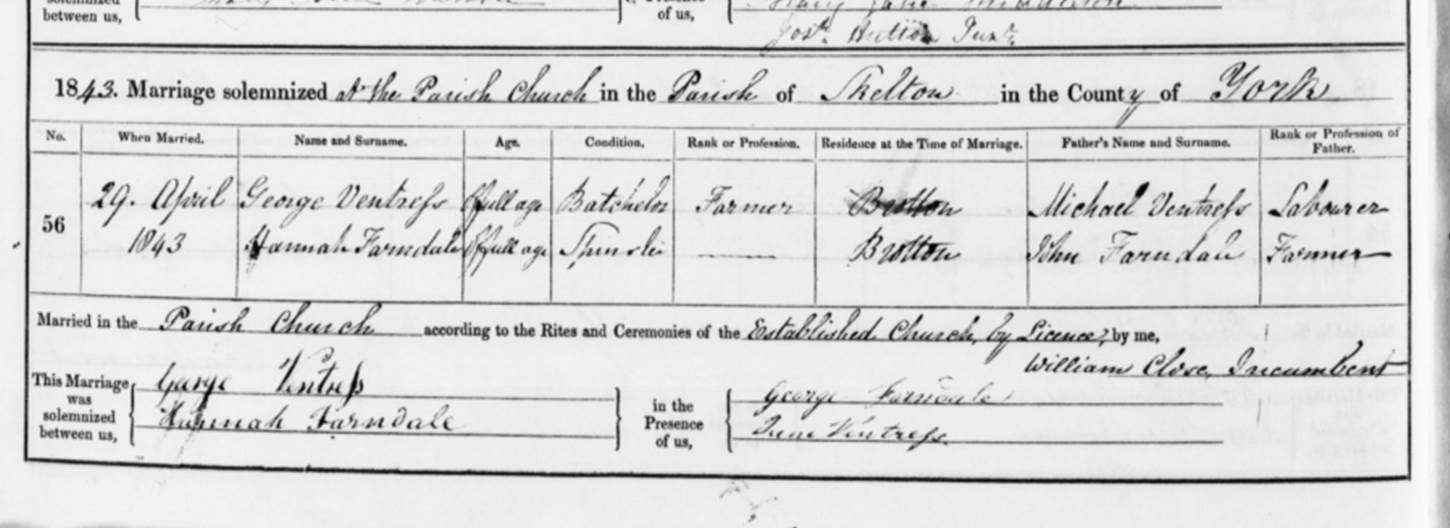 solemnized
between us,
of us,
Mary Jane Middleton
Josh. Hutton Junr.
1843. Marriage solemnized at the Parish Church in the Parish of Skelton in the County of York
No. When Married. Name and Surname. Age. Condition. Rank or Profession. Residence at the Time of Marriage. Father's Name and Surname. Rank or Profession of Father.
56 29. April George Ventress ffull age Batchelor Farmer Brotton Michael Ventress Labourer
1843 Hannah Farndale ffull age Spinster Brotton John Farndale Farmer
Married in the Parish Church according to the Rites and Ceremonies of the Established Church, by Licence, by me,
William Close, Incumbent
This Marriage was solemnized between us, George Ventress in the Presence of us, George Farndale
Hannah Farndale Jane Ventress